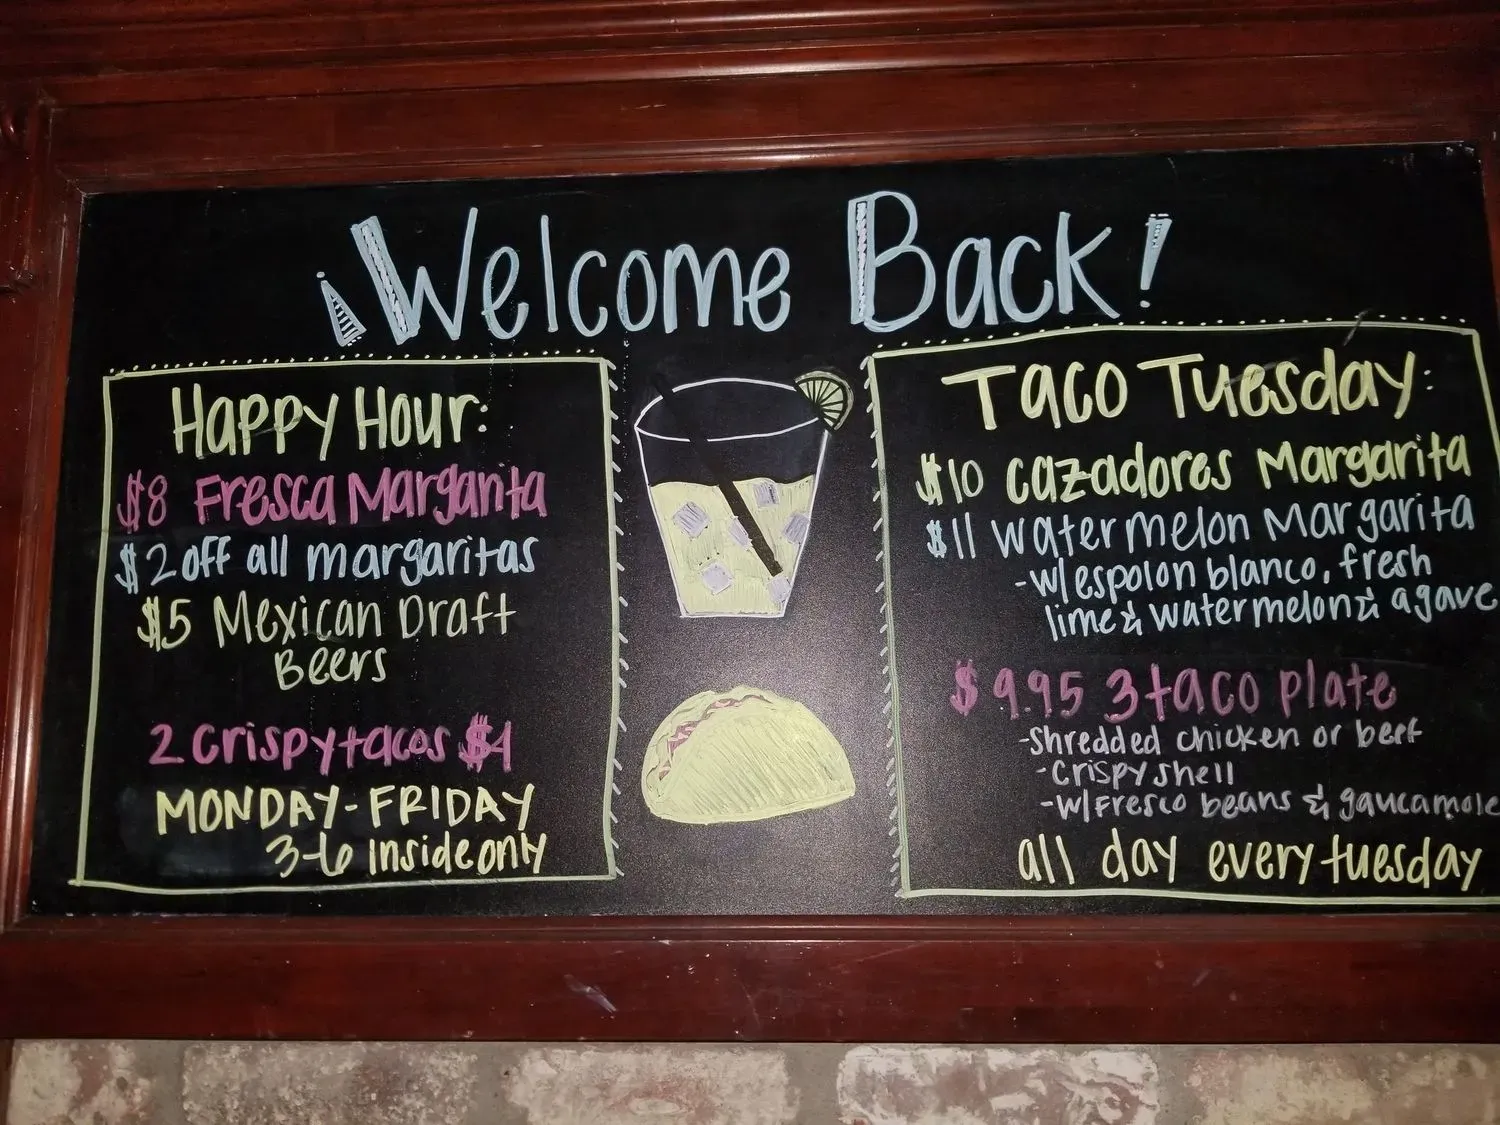 ¡Welcome Back!
Happy Hour:
$8 Fresca Margarita
$2 off all margaritas
$5 Mexican Draft
Beers
2 crispy tacos $4
MONDAY-FRIDAY
3-6 inside only
Taco Tuesday:
$10 Cazadores Margarita
$11 Watermelon Margarita
-w/espolon blanco, fresh
lime & watermelon & agave
$9.95 3 taco plate
-shredded chicken or beef
-crispy shell
-w/Fresco beans & gaucamole
all day every tuesday